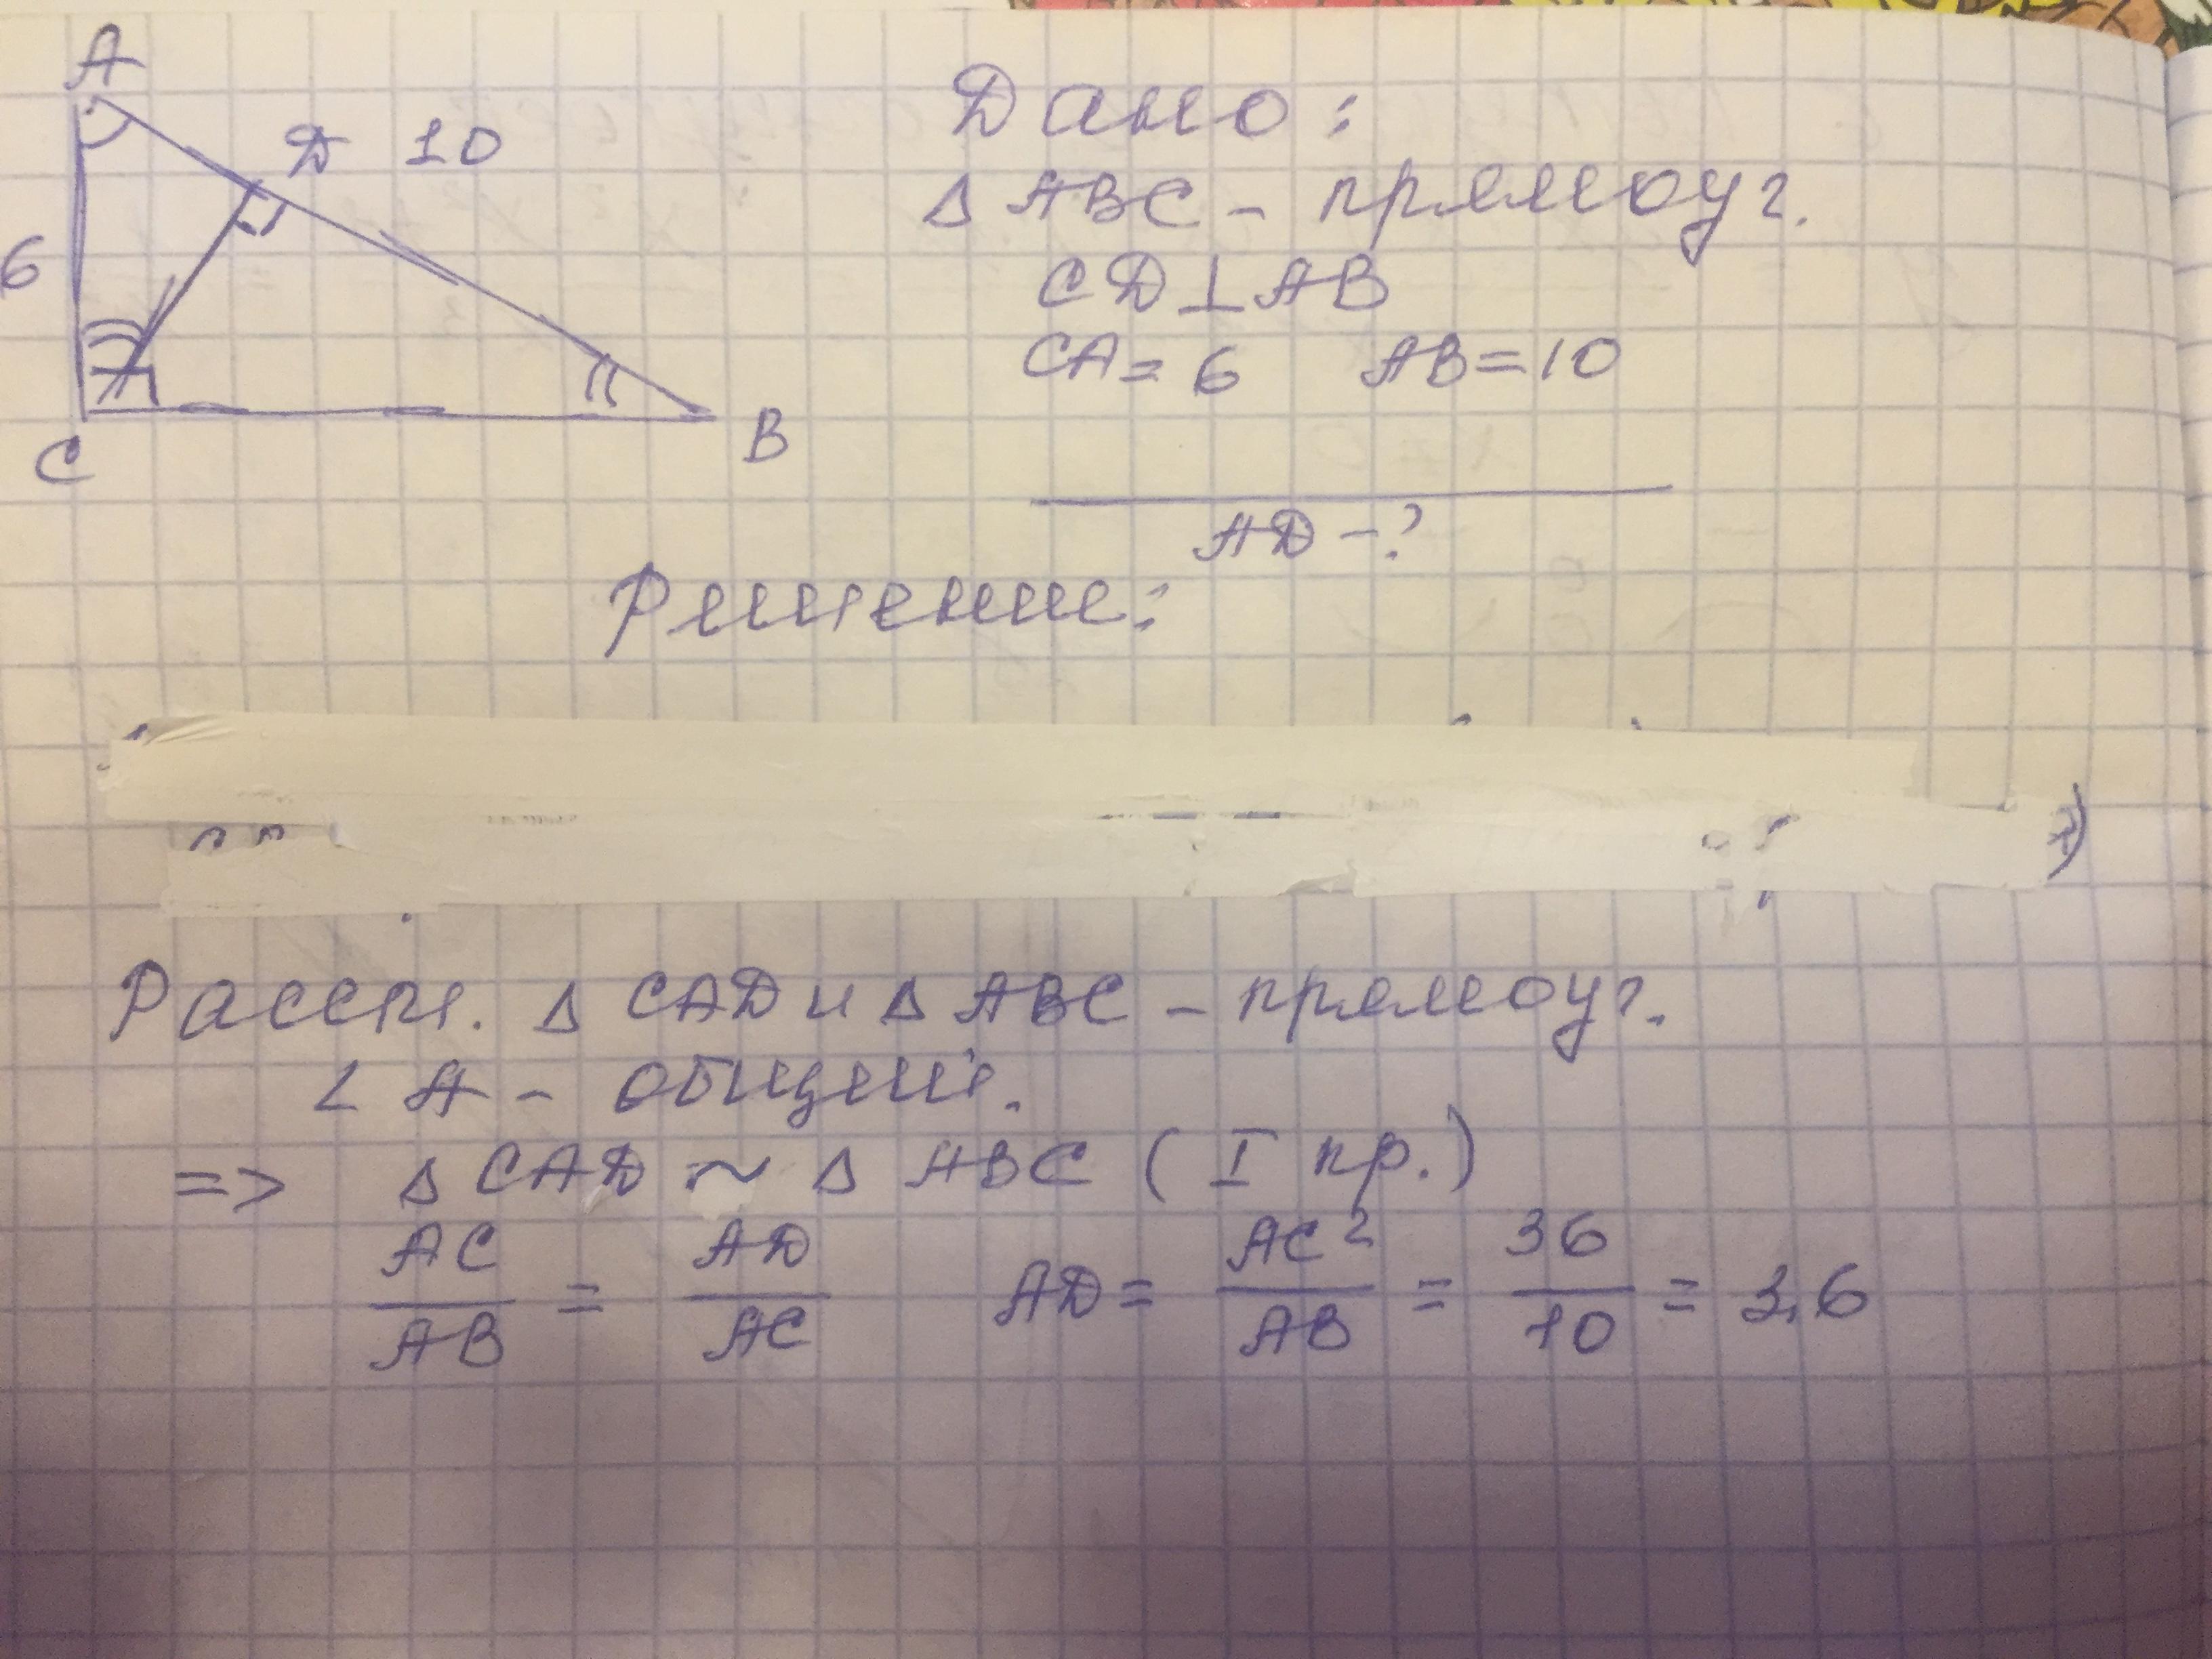 A
Д 10
6
C
B
Дано:
Δ ABC - прямоуг.
CД ⊥ AB
CA = 6 AB = 10
AД - ?
Решение:
Рассм. Δ CAД и Δ ABC - прямоуг.
∠ A - общий.
=> Δ CAД ~ Δ ABC ( I пр.)
AC/AB = AД/AC AД = AC²/AB = 36/10 = 3,6